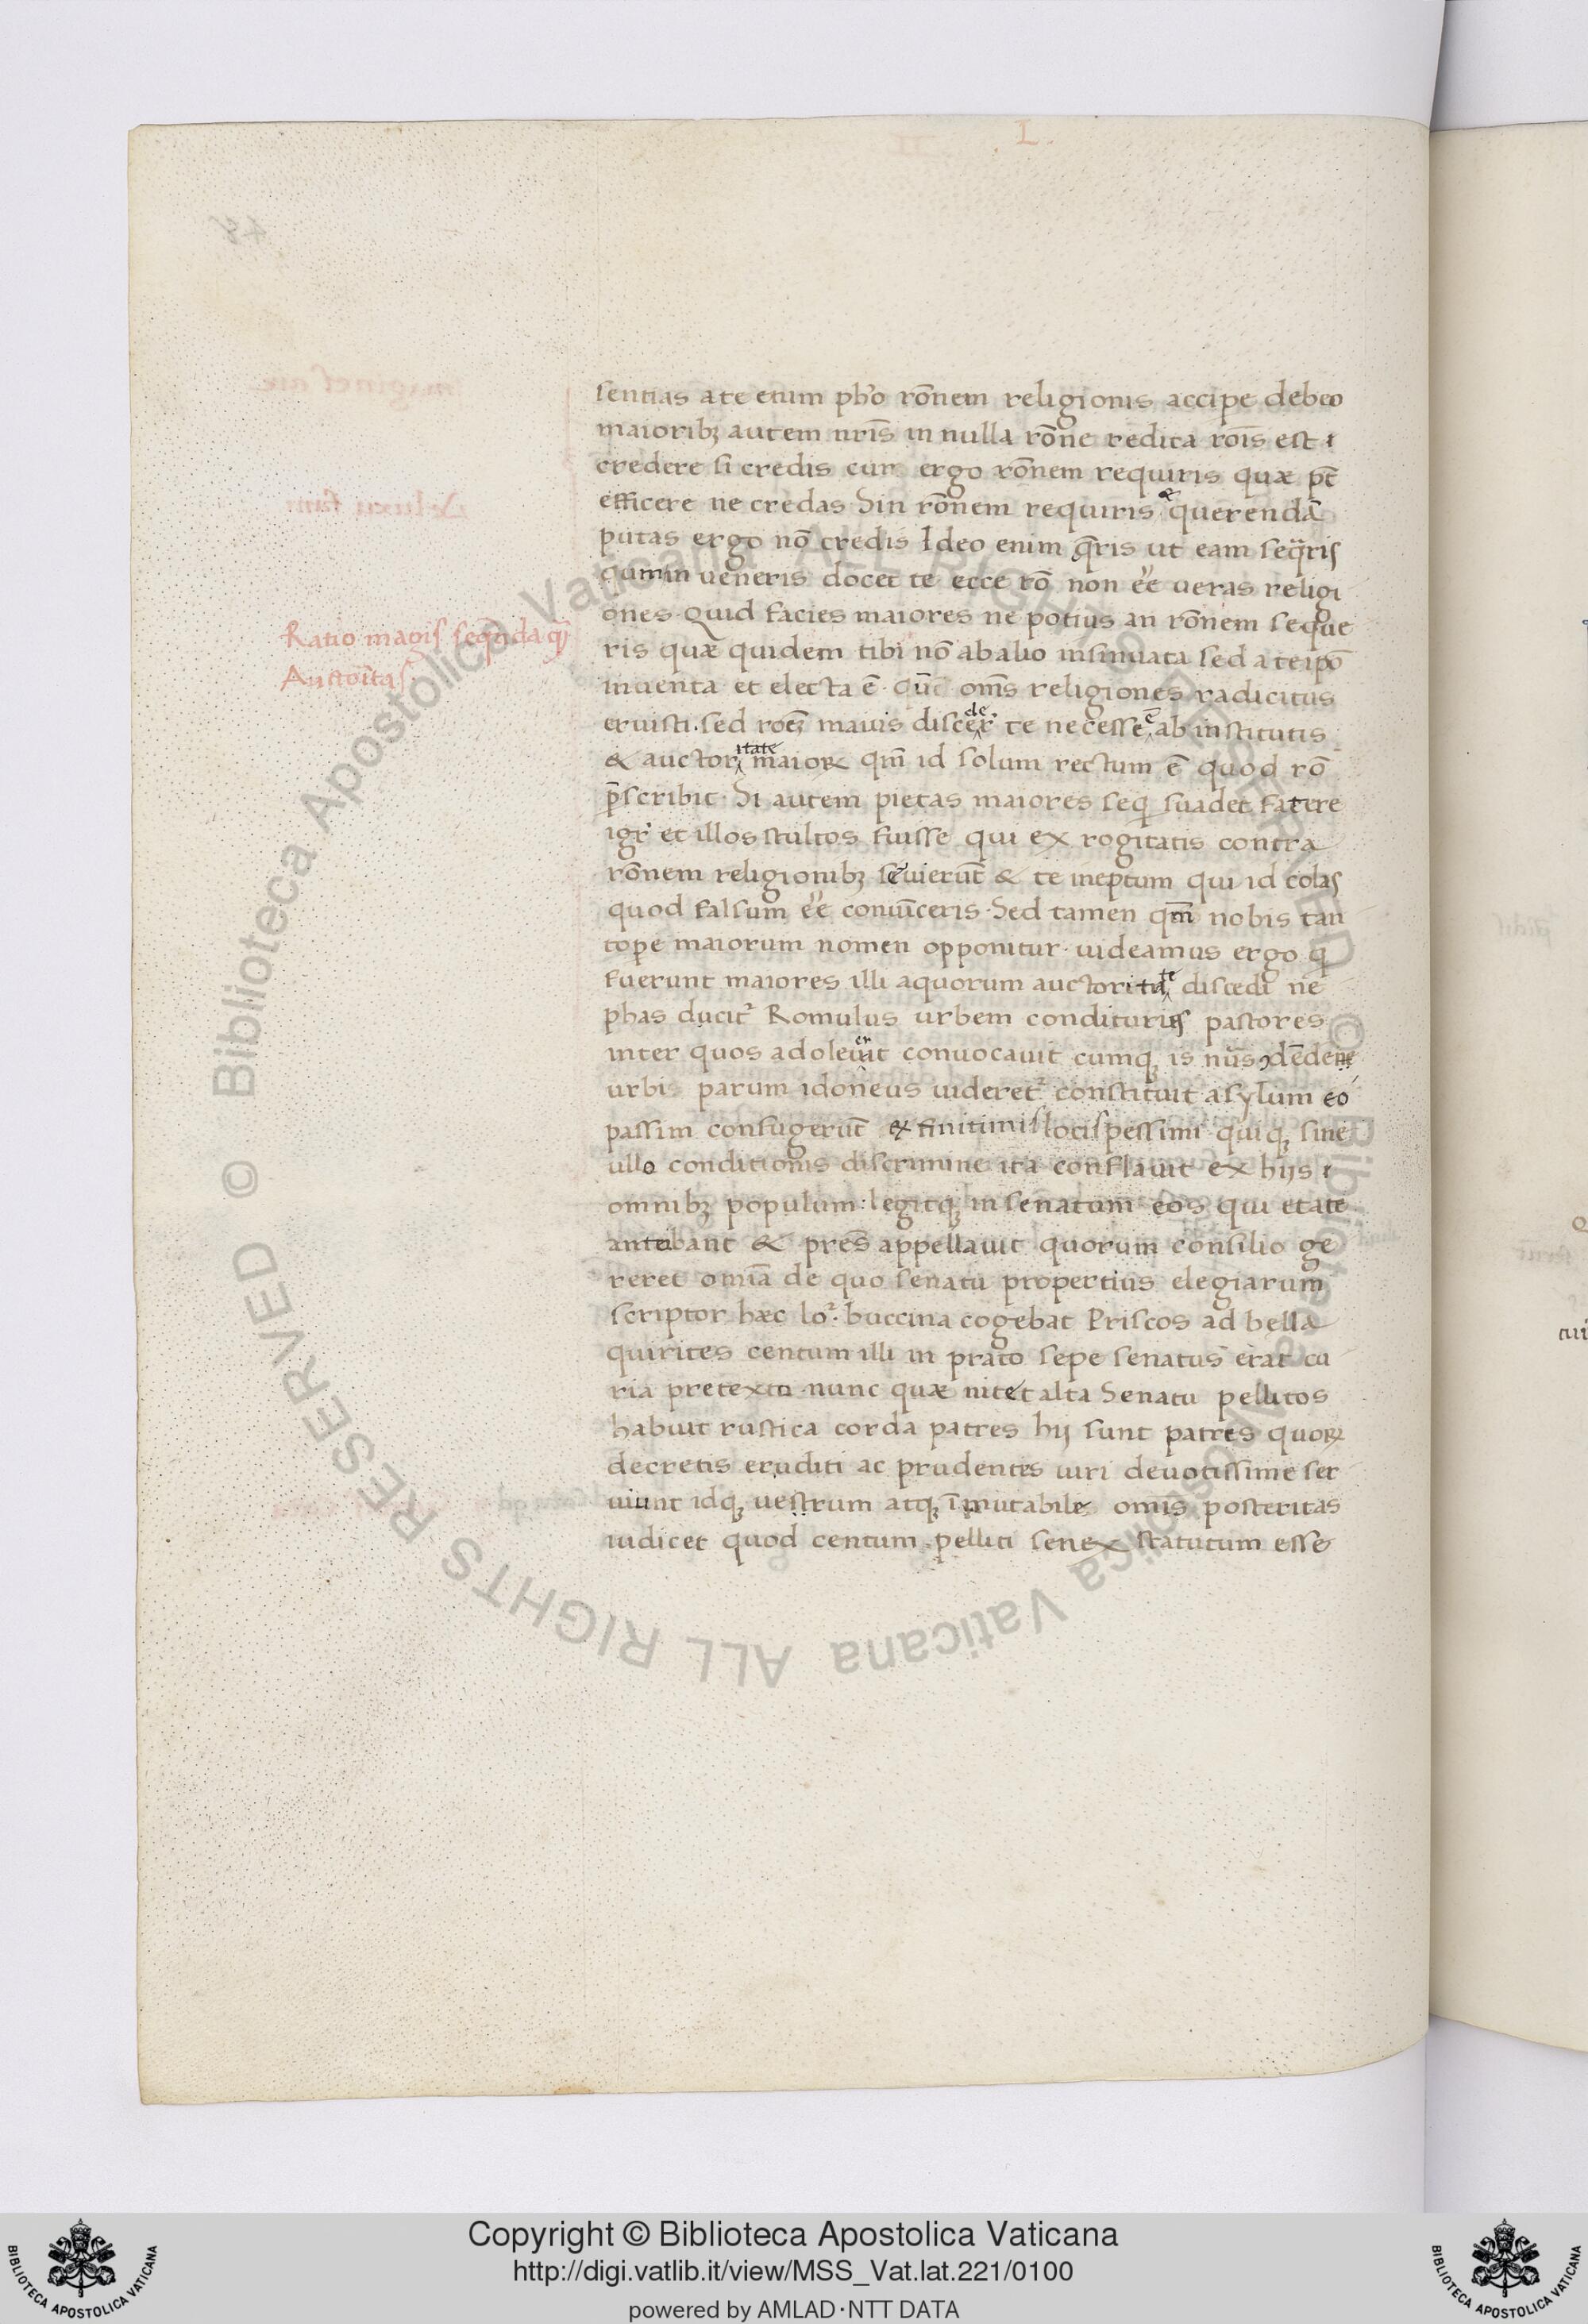 L
sentias a te enim ph̅o rōnem religionis accipe debeo
maioribꝫ autem nr̄is in nulla rōne redita rōis est
credere si credis cur ergo rōnem requiris quæ pt̄
efficere ne credas Sin rōnem requiris & querendā
putas ergo nō credis Ideo enim q̄ris ut eam seq̄ris
cum in ueneris docet te ecce rō non ēe ueras religi
ones · Quid facies maiores ne potius an rōnem seque
Ratio magis seqnda qꝫ
Auctoritas
ris quæ quidem tibi nō ab alio insinuata sed a te ipō
inuenta et electa ē · cūc om̄s religiones radicitus
eruisti · sed rōeꝫ mauis disceder̄ te necesse ē ab institutis
& auctoritate maioꝝ qm̄ id solum rectum ē quod rō
p̄scribit · Si autem pietas maiores seq̄ suadet fatere
igr̄ et illos stultos fuisse qui ex cogitatis contra
rōnem religionibꝫ seuierūt & te ineptum qui id colas
quod falsum ēe conuīceris · Sed tamen qm̄ nobis tan
tope maiorum nomen opponitur · uideamus ergo q̄
fuerunt maiores illi a quorum auctoritate discedi ne
phas ducit᷑ Romulus urbem condituris pastores
inter quos adoleuerat conuocauit cumqꝫ is nūs ꝯdēdene
urbis parum idoneus uideret᷑ constituit asylum eo
passim confugerūt ex finitimis locis pessimi quiqꝫ sine
ullo conditionis discrimine ita conflauit ex hijs
omnibꝫ populum : legitqꝫ in senatum eos qui etate
anteibant & pres̄ appellauit quorum consilio ge
reret omīa de quo senatu propertius elegiarum
scriptor hæc lo᷑ · buccina cogebat Priscos ad bella
quirites centum illi in prato sepe senatus erat cu
ria pretexto nunc quæ nitet alta Senatu pellitos
habuit rustica corda patres hij sunt patres quoꝝ
decretis eruditi ac prudentes uiri deuotissime ser
uiunt idqꝫ uestrum atqꝫ īmutabile omis̄ posteritas
iudicet quod centum pelliti senex statutum esse
Copyright © Biblioteca Apostolica Vaticana
http://digi.vatlib.it/view/MSS_Vat.lat.221/0100
powered by AMLAD·NTT DATA
BIBLIOTECA APOSTOLICA VATICANA
BIBLIOTECA APOSTOLICA VATICANA
© Biblioteca Apostolica Vaticana ALL RIGHTS RESERVED © Biblioteca Apostolica Vaticana ALL RIGHTS RESERVED